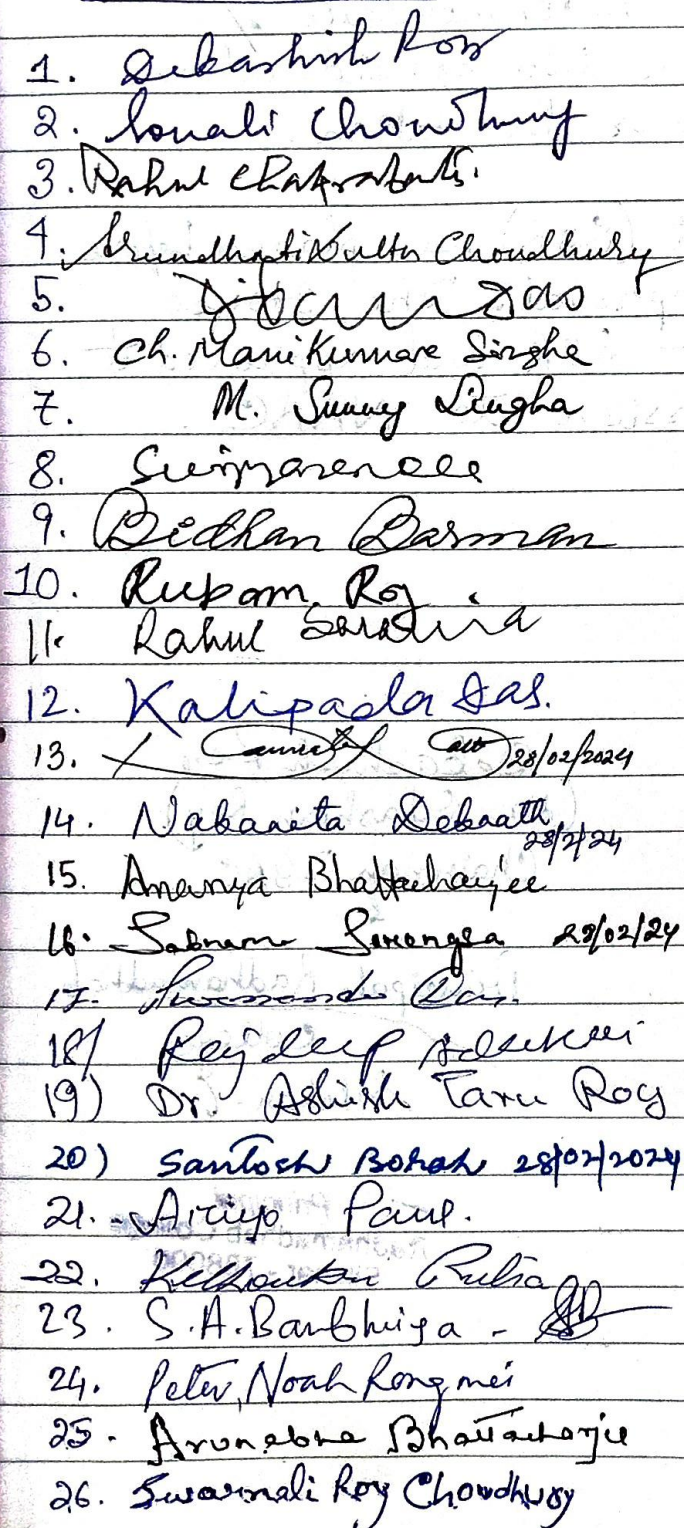 1. Debashish Roy
2. Sonali Choudhury
3. Rahul Chakrabarti.
4. Arundhati Dutta Choudhury
5. Das
6. Ch. Mani Kumar Singha
7. M. Sunny Singha
8.
9. Bidhan Barman
10. Rupam Roy
11.  Rahul
12. Kalipada Das.
13. 28/02/2024
14. Nabanita Debnath
28/2/24
15. Ananya Bhattacharjee
16. Sabnam 28/02/24
17. Das.
18/ Rajdeep
19) Dr. Ashish Taru Roy
20) Santosh Borah 28/02/2024
21. Paul.
22.
23. S.A. Barbhuiya -
24. Peter, Noah Rongmei
25. Arunabha Bhattacharjee
26. Swarnali Roy Choudhury